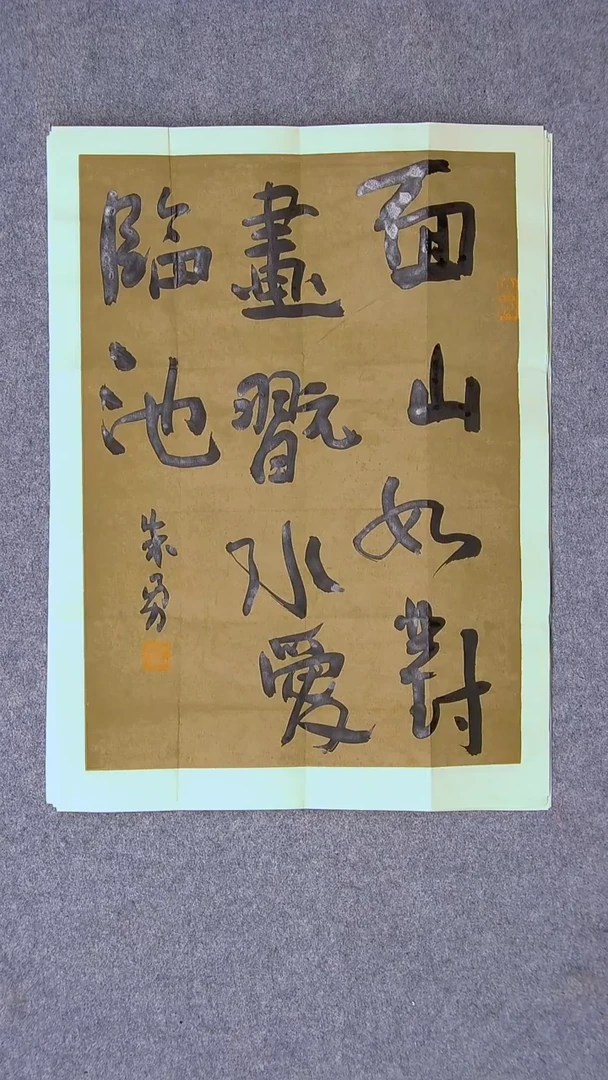 面山如對
畫翫水愛
臨池
朱勇